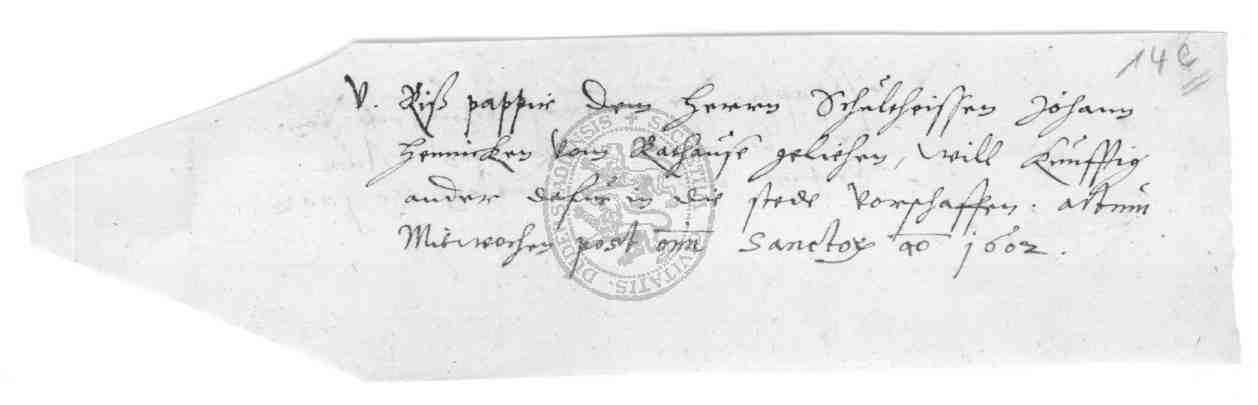 14 C
V. Riß pappir dem Herrn Schultheissen Johann
Hennicken vom Rathause geliehen, will kunfftig
ander dafur in die stede vorschaffen. actum
Mitwochen post oim Sanctor ao 1602.
SIGILLUM CIVITATIS DRESDENSIS